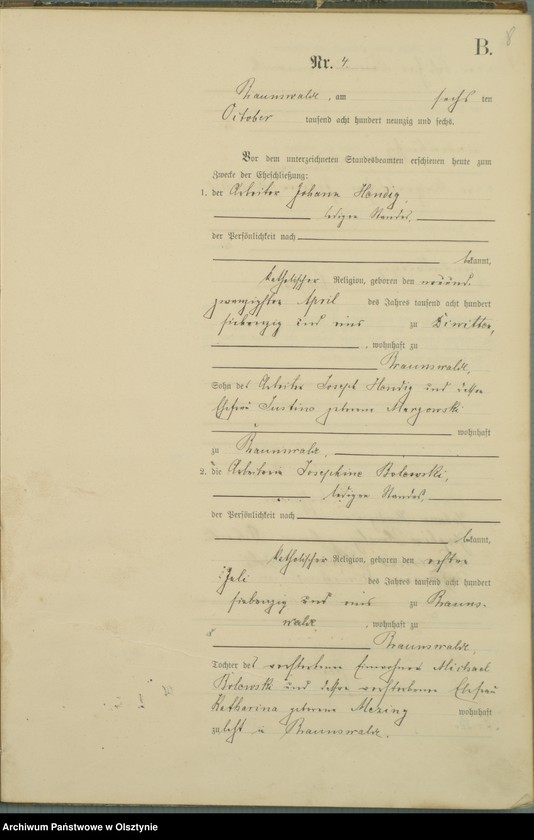 B.
8
Nr. 4.
Braunswalde, am sechs ten
October tausend acht hundert neunzig und sechs.
Vor dem unterzeichneten Standesbeamten erschienen heute zum
Zwecke der Eheschließung:
1. der Arbeiter Johann Hendig,
ledigen Standes,
der Persönlichkeit nach
bekannt,
katholischer Religion, geboren den neunund
zwanzigsten April des Jahres tausend acht hundert
siebenzig und eins zu Diwitten,
, wohnhaft zu
Braunswalde,
Sohn des Arbeiter Josef Hendig und dessen
Ehefrau Justina geborene
wohnhaft
zu Braunswalde,
2. die Arbeiterin Josephine Bolowski,
ledigen Standes,
der Persönlichkeit nach
bekannt,
katholischer Religion, geboren den achten
Juli des Jahres tausend acht hundert
siebenzig und eins zu Brauns-
walde, wohnhaft zu
Braunswalde,
Tochter des verstorbenen Einwohners Michael
Bolowski und dessen verstorbenen Ehefrau
Katharina geborene wohnhaft
zuletzt in Braunswalde.
Archiwum Państwowe w Olsztynie